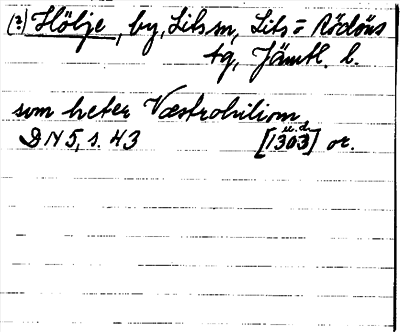 (?) Hölje, by, Lits sn, Lits = Rödöns
tg, Jämtl. l.
som heter Væstrohiliom,
DN 5, s. 43 [1303] or.